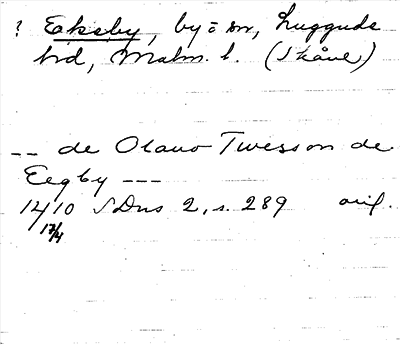 ? Eksby, by ō sn, Luggude
hd, Malm. l. (Skåne)
-- de Olauo Twesson de
Eegby ---
1410 SDns 2, s. 289 orig.
17/4